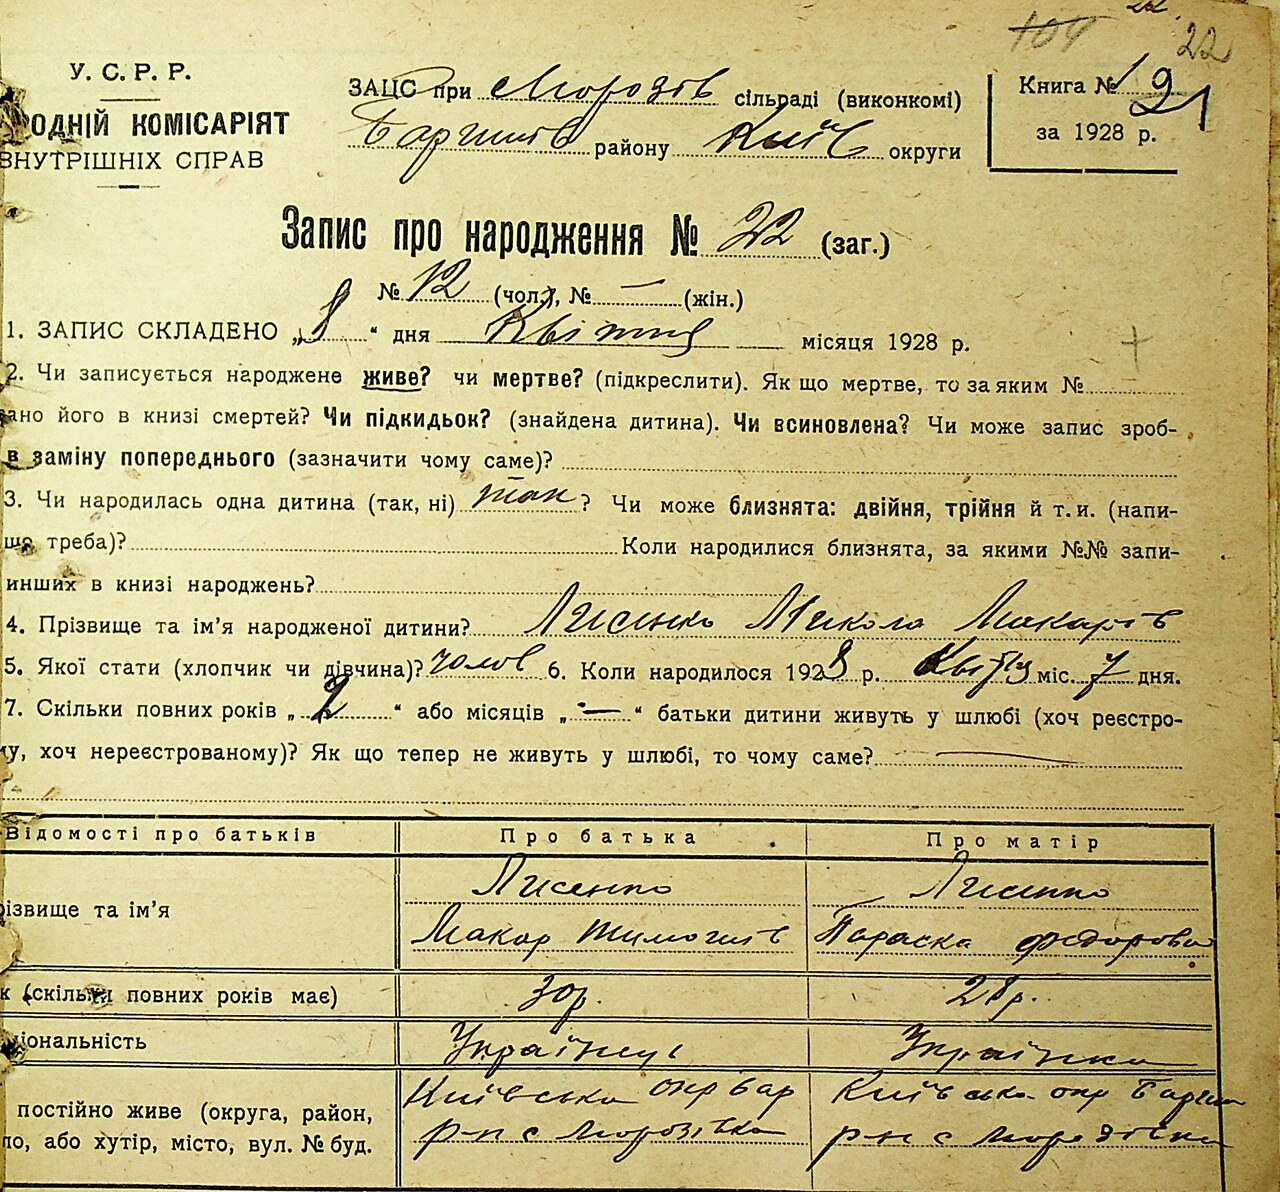 22
104 22
У. С. Р. Р.
ОДНІЙ КОМІСАРІЯТ
ВНУТРІШНІХ СПРАВ
ЗАЦС при Морозів сільраді (виконкомі)
Баришів району Київ округи
Книга № 21
за 1928 р.
Запис про народження № 22 (заг.)
№ 12 (чол.), № — (жін.)
1. ЗАПИС СКЛАДЕНО „8“ дня Квітня місяця 1928 р.
2. Чи записується народжене живе? чи мертве? (підкреслити). Як що мертве, то за яким №
ано його в книзі смертей? Чи підкидьок? (знайдена дитина). Чи всиновлена? Чи може запис зроб-
в заміну попереднього (зазначити чому саме)?
3. Чи народилась одна дитина (так, ні) так ? Чи може близнята: двійня, трійня й т. и. (напи-
що треба)? Коли народилися близнята, за якими №№ запи-
инших в книзі народжень?
4. Прізвище та ім’я народженої дитини? Лисенко Микола Макарів
5. Якої стати (хлопчик чи дівчина)? чолов 6. Коли народилося 1928 р. Квітня міс. 7 дня.
7. Скільки повних років „2“ або місяців „—“ батьки дитини живуть у шлюбі (хоч реєстро-
у, хоч нереєстрованому)? Як що тепер не живуть у шлюбі, то чому саме? —
Відомості про батьків Про батька Про матір
різвище та ім’я Лисенко Лисенко
Макар Тимошів Параска Федорова
к (скільки повних років має) 30р. 28р.
ціональність Українець Українка
постійно живе (округа, район, Київська окр Бар Київська окр Бариш
ло, або хутір, місто, вул. № буд. р-н с Морозівка р-н с Морозівка